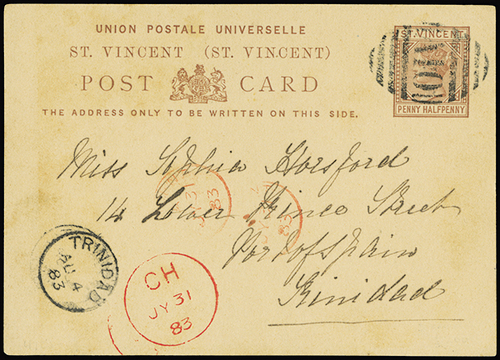 UNION POSTALE UNIVERSELLE
ST. VINCENT (ST. VINCENT)
POST CARD
THE ADDRESS ONLY TO BE WRITTEN ON THIS SIDE.
ST. VINCENT
PENNY HALFPENNY
Miss Sophia Horsford
14 Lower Prince Street
Port of Spain
Trinidad
TRINIDAD
AU 4
83
CH
JY 31
83
31
83
83